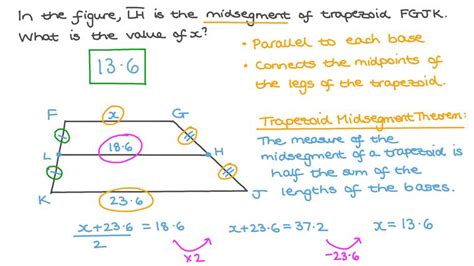 In the figure, LH is the midsegment of trapezoid FGJK.
What is the value of x?
13.6
• Parallel to each base
• Connects the midpoints
of the legs of the trapezoid.
F x G
L 18.6 H
K 23.6 J
Trapezoid Midsegment Theorem:
The measure of the
midsegment of a trapezoid is
half the sum of the
lengths of the bases.
x+23.6/2 = 18.6 x+23.6 = 37.2 x = 13.6
×2 -23.6